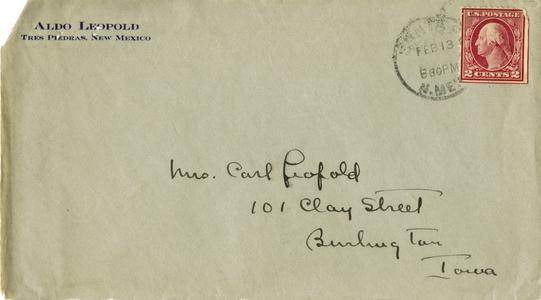 ALDO LEOPOLD
TRES PIEDRAS, NEW MEXICO
FEB 13
530PM
N. MEX
U.S. POSTAGE
2 CENTS 2
Mrs. Carl Leopold
101 Clay Street
Burlington
Iowa